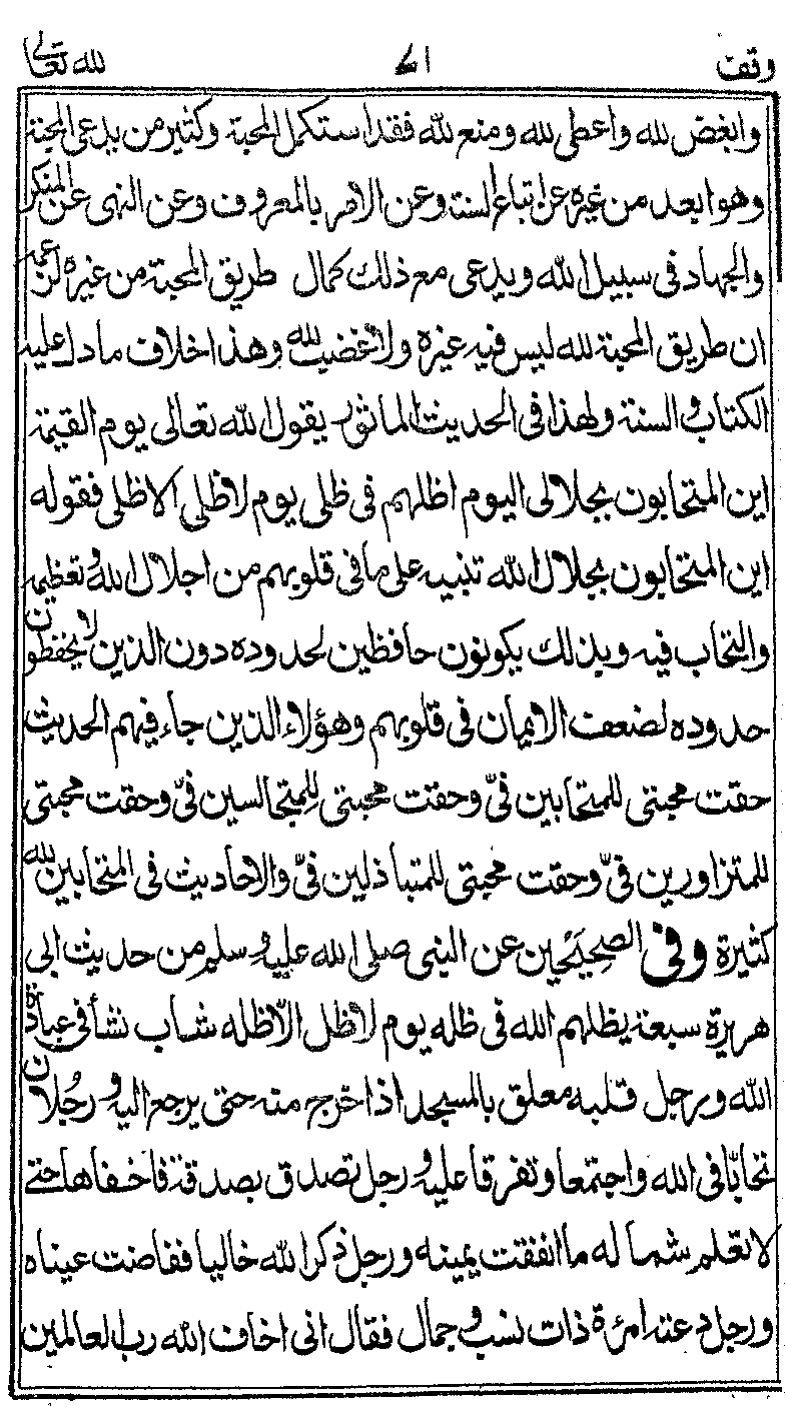 وقف ٧١ لله تعالى
وابغض لله واعطى لله ومنع لله فقد استكمل المحبة وكثير من يدعى المحبة
وهو ابعد من غيره عن اتباع السنة وعن الامر بالمعروف وعن النهى عن المنكر
والجهاد فى سبيل الله ويدعى مع ذلك كمال طريق المحبة من غيره لزعمه
ان طريق المحبة لله ليس فيه غيره ولا غضب لله وهذا خلاف ما دل عليه
الكتاب والسنة ولهذا فى الحديث الماثور يقول الله تعالى يوم القيمة
اين المتحابون بجلالى اليوم اظلهم فى ظلى يوم لا ظل الا ظلى فقوله
اين المتحابون بجلال الله تنبيه على ما فى قلوبهم من اجلال الله وتعظيمه
والتحاب فيه وبذلك يكونون حافظين لحدوده دون الذين لا يحفظون
حدوده لضعف الايمان فى قلوبهم وهؤلاء الذين جاء فيهم الحديث
حقت محبتى للمتحابين فىّ وحقت محبتى للمتجالسين فىّ وحقت محبتى
للمتزاورين فىّ وحقت محبتى للمتباذلين فىّ والاحاديث فى المتحابين لله
كثيرة وفى الصحيحين عن النبى صلى الله عليه وسلم من حديث ابى
هريرة سبعة يظلهم الله فى ظله يوم لا ظل الّا ظله شاب نشأ فى عبادة
الله ورجل قلبه معلق بالمسجد اذا خرج منه حتى يرجع اليه ورجُلان
تحابّا فى الله واجتمعا وتفرقا عليه ورجل تصدق بصدقة فاخفاها حتى
لا تعلم شماله ما انفقت يمينه ورجل ذكر الله خاليا ففاضت عيناه
ورجل دعته امرءة ذات نسب وجمال فقال انى اخاف الله رب العالمين